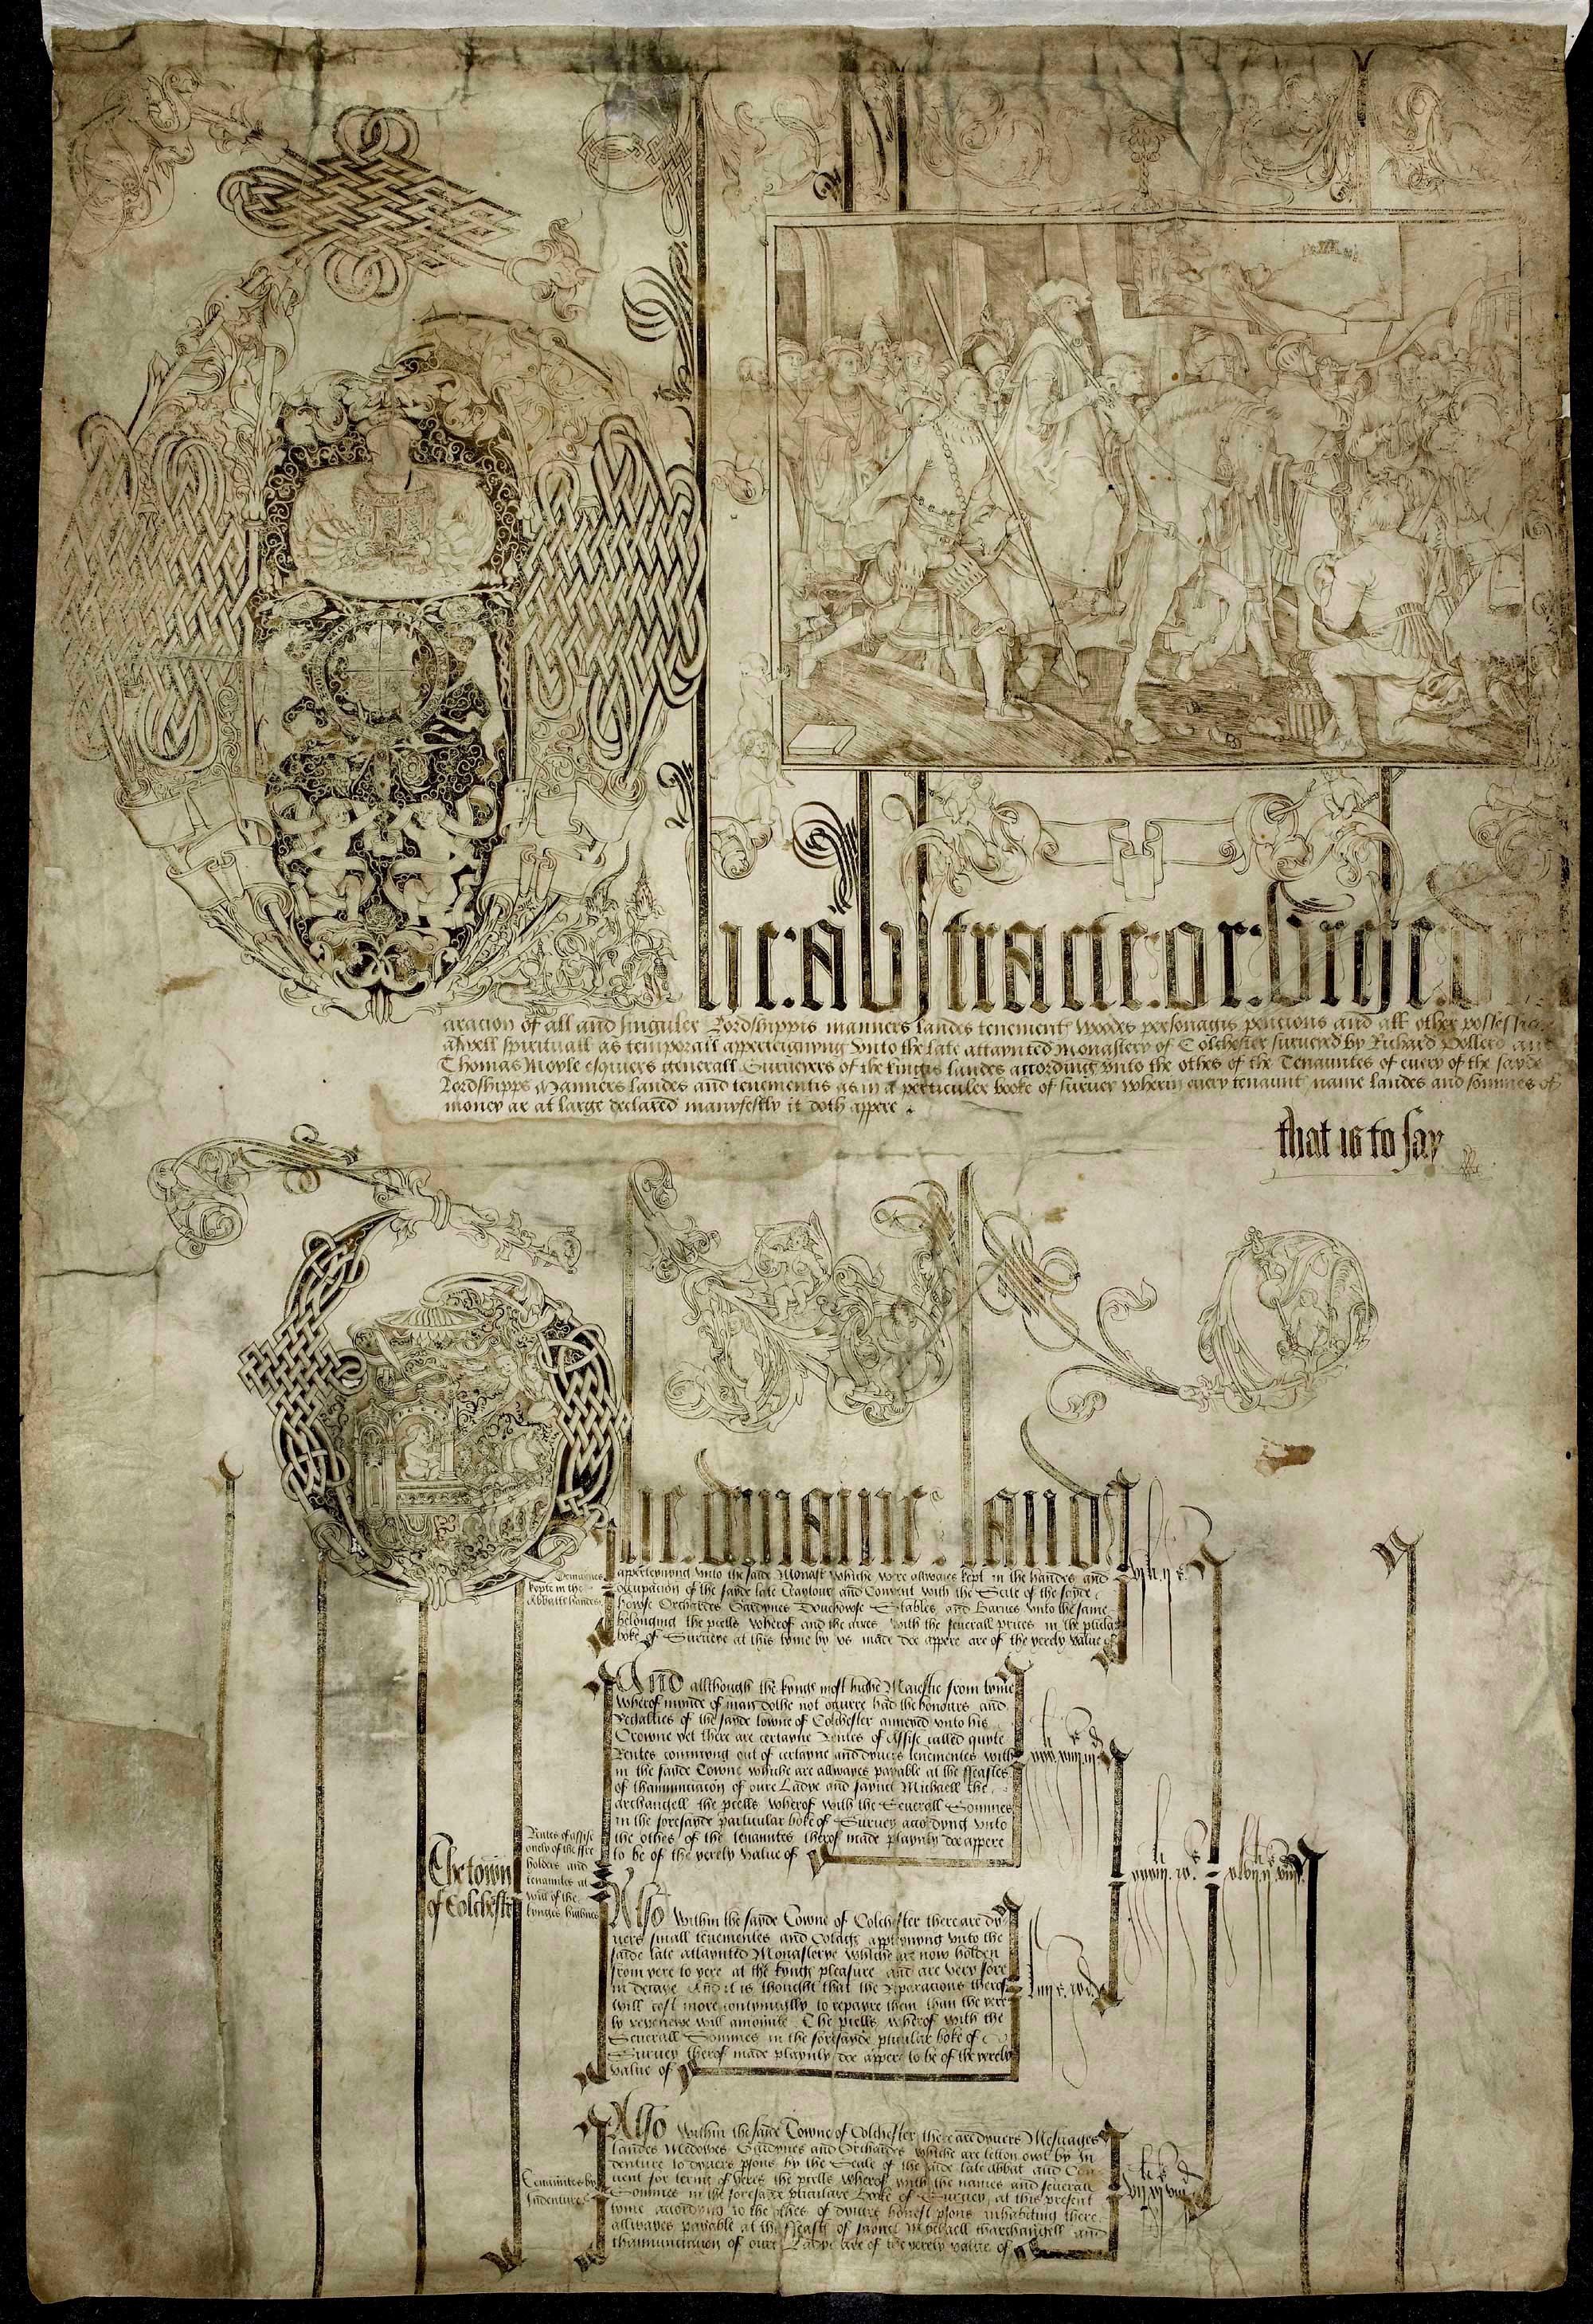 The abstracte or briefe decl
aracion of all and singuler Lordshippis manners landes tenement woodes personagis pencions and all other possessions
aswell spirituall as temporall apperteignyng vnto the late attaynted monastery of Colchester surueied by Richard Pollerd and
Thomas Moyle esquiers generall Surueiers of the kingis landes according vnto the othes of the Tenauntes of euery of the sayde
Lordshipps Manners landes and tenementis as in a perticuler booke of suruey wherin euery tenaunt name landes and sommes of
money ar at large declared manyfestly it doth appere
that is to say
The dmaine landes
Demaynes
kepte in the
Abbattis handes
apperteynyng vnto the saide Monast whiche were allwaies kept in the handes and
occupacion of the sayde late and Convent with the Scite of the sayde
howse Orchardes Gardynes Douehowse Stables and Barnes vnto the same
belonging the pcells wherof and the acres with the seuerall prices in the pticular
boke of Surueye at this tyme by vs made doe appere are of the yerely value of
And although the kyngs most highe Maiestie from tyme
wherof mynde of man dothe not ocurre had the honours and
Regalties of the sayde towne of Colchester annexed vnto his
Crowne yet there are certayne Rentes of Assise called quyte
Rentes commyng out of certayne and dyuers tenementes with
in the sayde Towne whiche are allwayes payable at the Feastes
of thannunciacion of oure Ladye and saynct Michaell the
archangell the pcells wherof with the Seuerall Sommes
in the foresayde particular boke of Suruey accordyng vnto
the othes of the tenauntes therof made playnly doe appere
to be of the yerely value of
The town
of Colchester
Rentes of assise
onely of the free
holders and
tenauntes at
will of the
kynges highnes
Also within the sayde Towne of Colchester there are dy
uers small tenementes and Cotags apptaynyng vnto the
saide late attaynted Monasterye whiche ar now holden
from yere to yere at the kyngs pleasure and are very sore
in decaye And it is thought that the Reparacions therof
will cost more contynually to repayre them than the yere
ly revenewe will amounte The pcells wherof with the
Seuerall Sommes in the foresayde pticular boke of
Suruey therof made playnly doe appere to be of the yerely
value of
Tenauntes by
Indenture
Also within the sayde Towne of Colchester there are dyuers Mesuages
landes Medowes Gardynes and Orchardes whiche are letton owt by In
denture to dyuers psons by the Seale of the saide late abbat and Con
uent for terme of yeres the pcells wherof with the names and seuerall
Sommes in the foresayde pticulare Boke of Suruey at this present
tyme accordyng to the othes of dyuers honest psons inhabiting there
allwayes payable at the Feasts of saynct Michaell tharchangell and
thannunciacion of oure Ladye are of the yerely value of